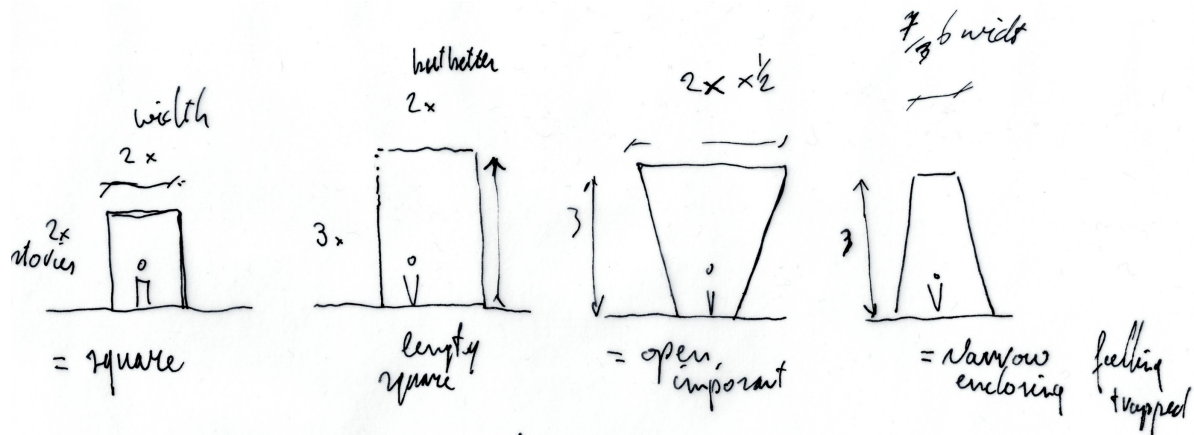 width
2x
2x
stories
= square
but better
2x
3x
lengty
square
2x x½
3
= open,
imporant
6 widt
3
= Narrow
encloring
feelling
trapped